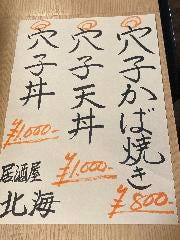 穴子かば焼き
¥800-
穴子天丼
¥1,000-
穴子丼
¥1,000-
居酒屋
北海